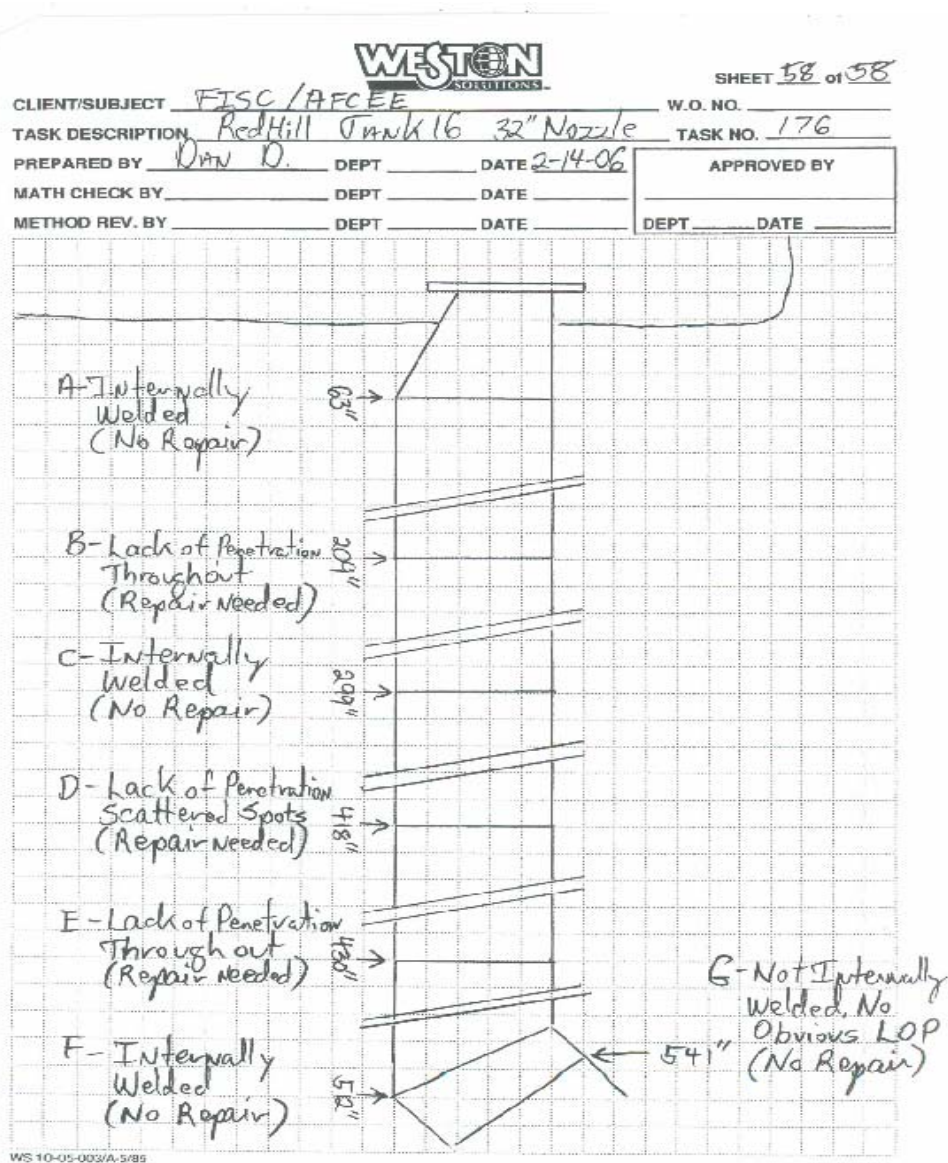 WESTON
SOLUTIONS
SHEET 58 of 58
CLIENT/SUBJECT FISC / AFCEE W.O. NO.
TASK DESCRIPTION RedHill TANK 16 32" Nozzle TASK NO. 176
PREPARED BY DAN D. DEPT DATE 2-14-06 APPROVED BY
MATH CHECK BY DEPT DATE
METHOD REV. BY DEPT DATE DEPT DATE
A-Internally
Welded
(No Repair)
63"
B-Lack of Penetration
Throughout
(Repair Needed)
209"
C-Internally
Welded
(No Repair)
299"
D-Lack of Penetration
Scattered Spots
(Repair Needed)
418"
E-Lack of Penetration
Through out
(Repair Needed)
430"
F-Internally
Welded
(No Repair)
G-Not Internally
Welded, No
Obvious LOP
(No Repair)
541"
WS 10-05-003/A-5/85